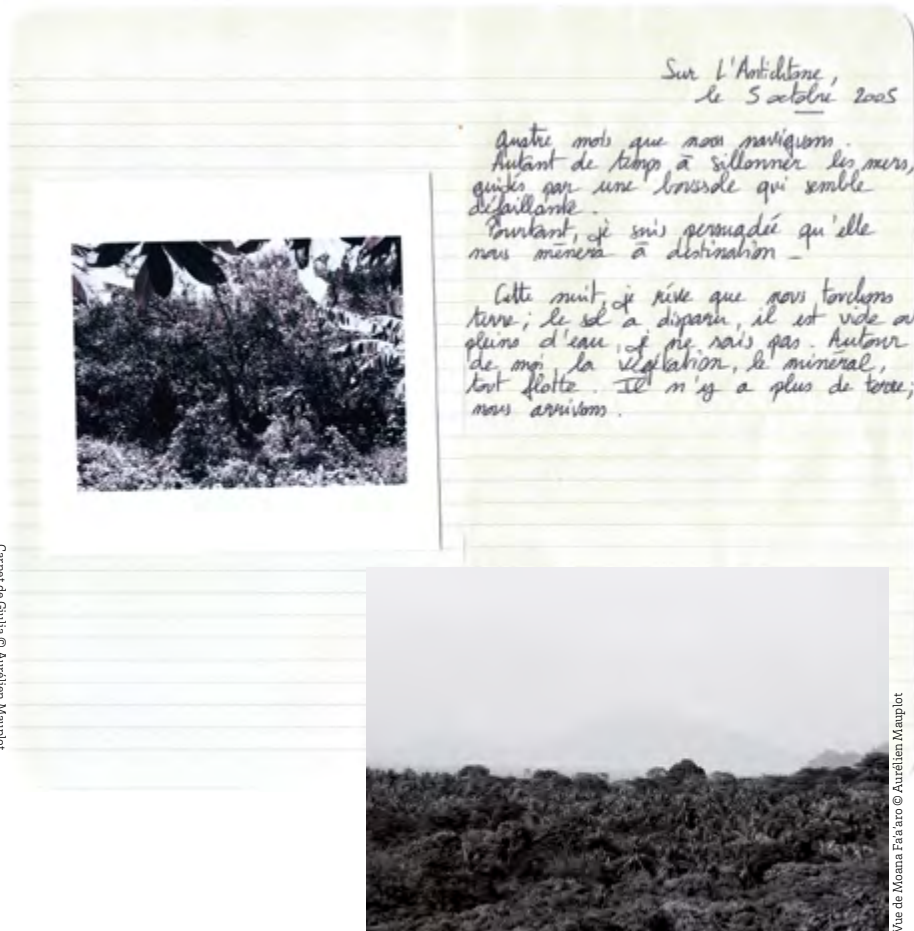 Sur L'Antichtone,
le 5 octobre 2005
Quatre mois que nous naviguons.
Autant de temps à sillonner les mers,
guidés par une boussole qui semble
défaillante.
Pourtant, je suis persuadée qu'elle
nous mènera à destination –
Cette nuit, je rêve que nous touchons
terre ; le sol a disparu, il est vide ou
pleins d'eau, je ne sais pas. Autour
de moi la végétation, le minéral,
tout flotte. Il n'y a plus de terre,
nous arrivons.
Carnet de Giulia © Aurélien Mauplot
Vue de Moana Fa'a'aro © Aurélien Mauplot